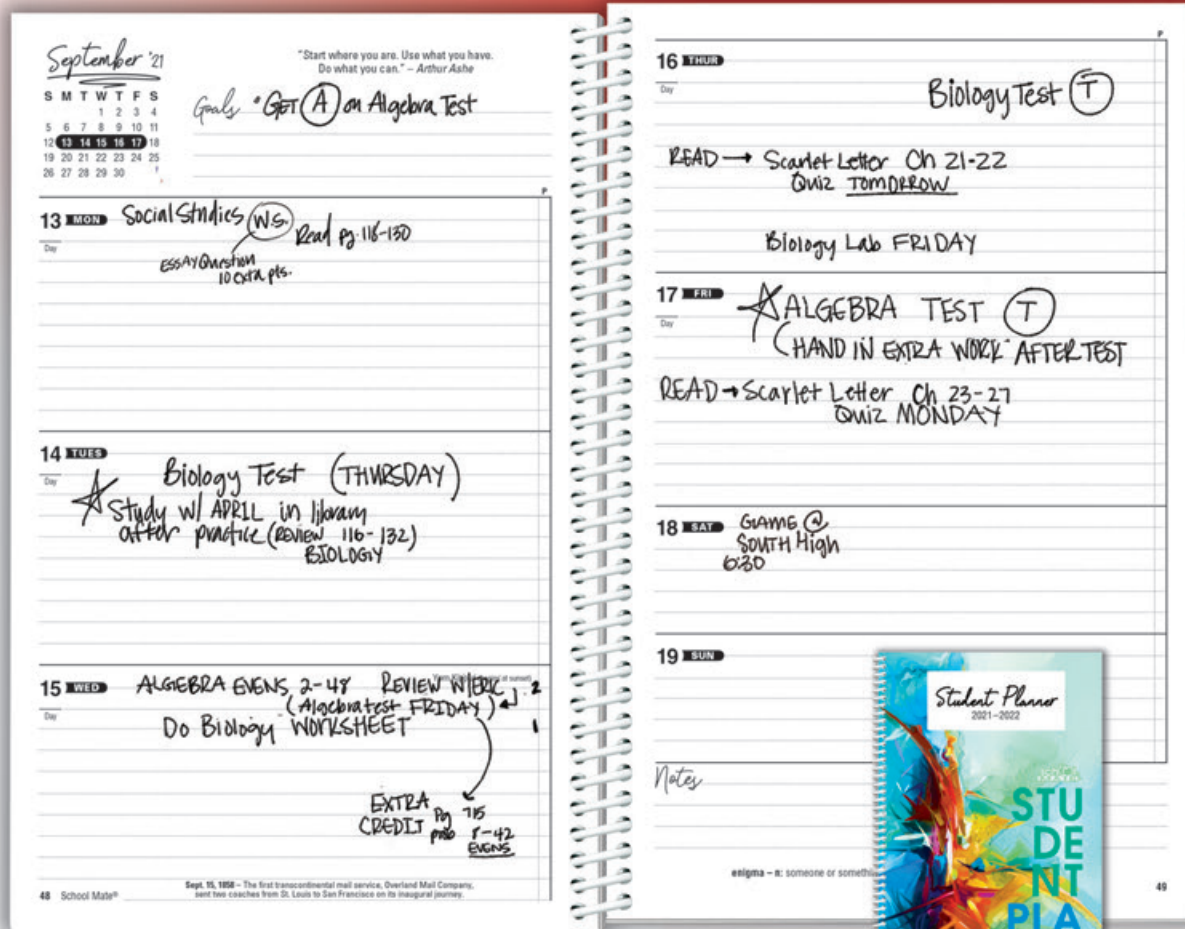 September '21
S M T W T F S
1 2 3 4
5 6 7 8 9 10 11
12 13 14 15 16 17 18
19 20 21 22 23 24 25
26 27 28 29 30
"Start where you are. Use what you have.
Do what you can." – Arthur Ashe
Goals • GET A on Algebra Test
P
13 MON Social Studies W.S. Read pg. 116-130
Day
ESSAY Question
10 extra pts.
14 TUES
Day
Biology Test (THURSDAY)
Study w/ APRIL in library
after practice (REVIEW 116-132)
BIOLOGY
15 WED ALGEBRA EVENS 2-48 REVIEW W/ERIC 2
Day
(Algebra test FRIDAY)
Do Biology WORKSHEET 1
EXTRA
CREDIT
Pg 715
prob 8-42
EVENS
Sept. 15, 1858 – The first transcontinental mail service, Overland Mail Company,
sent two coaches from St. Louis to San Francisco on its inaugural journey.
48 School Mate®
P
16 THUR
Day
Biology Test T
READ → Scarlet Letter Ch 21-22
Quiz TOMORROW
Biology Lab FRIDAY
17 FRI
Day
ALGEBRA TEST T
(HAND IN EXTRA WORK AFTER TEST
READ → Scarlet Letter Ch 23-27
Quiz MONDAY
18 SAT GAME @
SOUTH High
6:30
19 SUN
Notes
enigma – n: someone or
49
Student Planner
2021–2022
STU
DE
NT
PLA